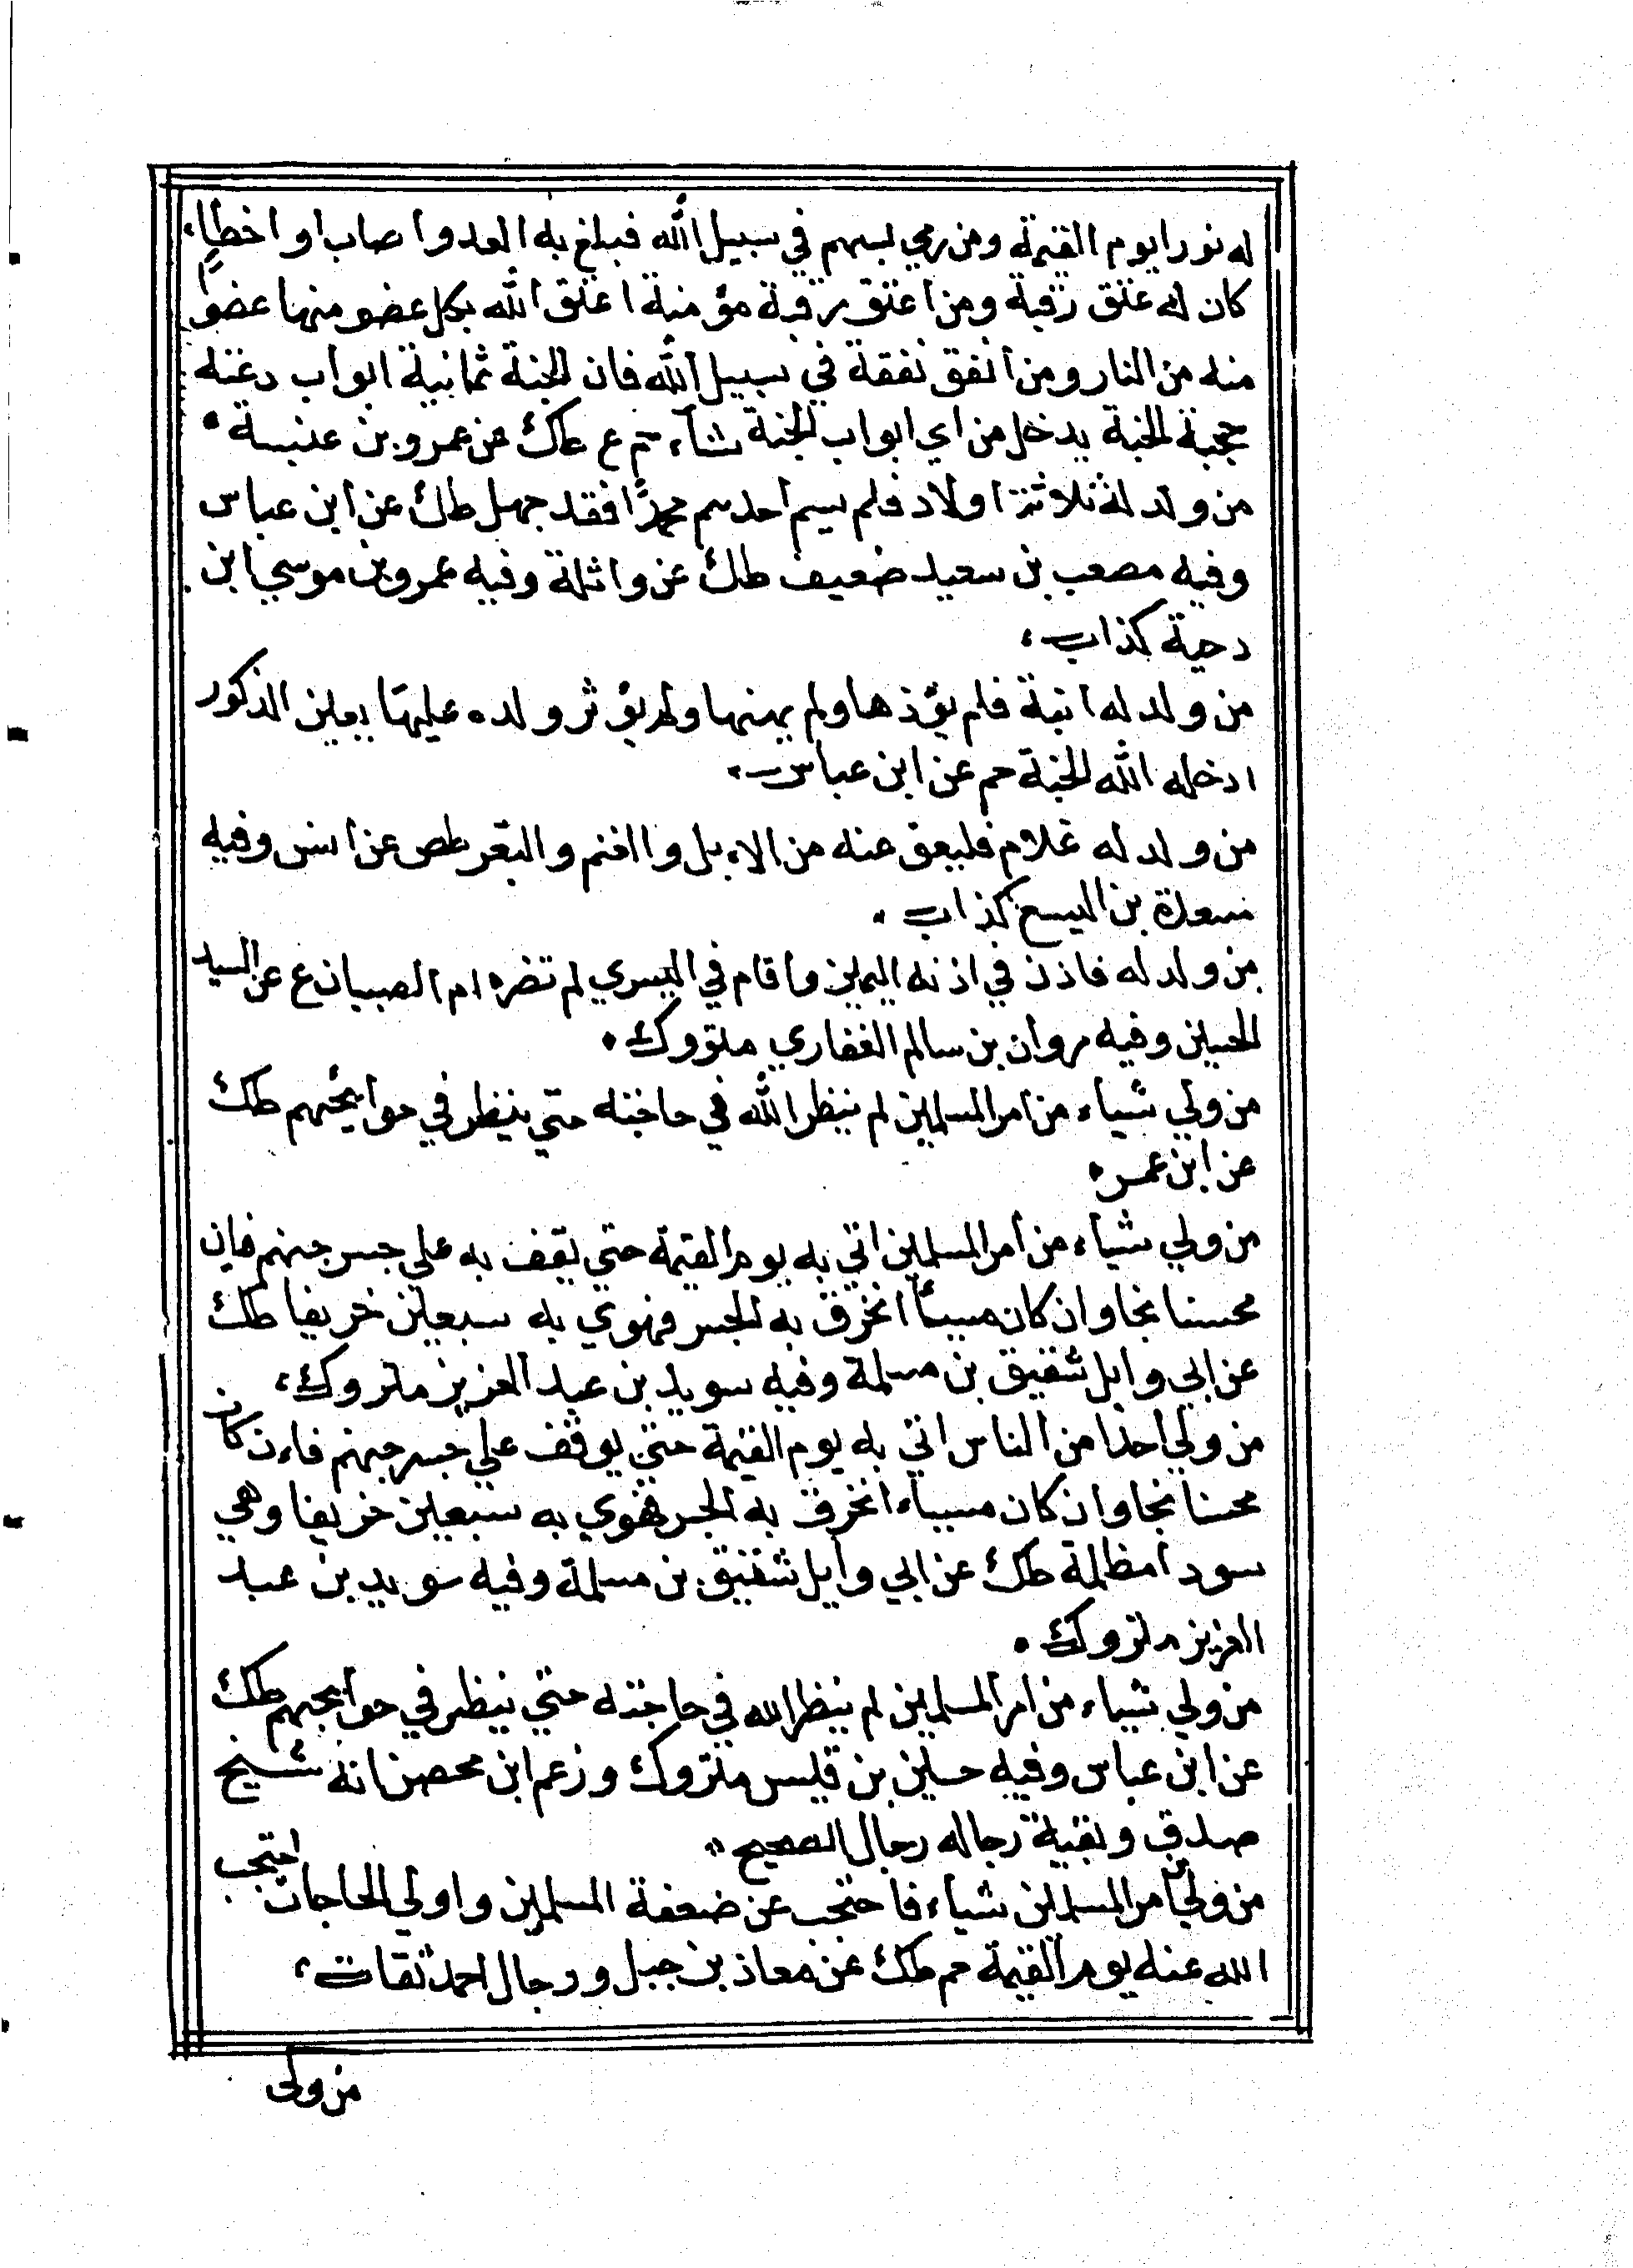 له نورا يوم القيمة ومن رمي بسهم في سبيل الله فبلغ به العدوا صاب او اخطا،
كان له عتق رقبة ومن اعتق رقبة مؤمنة اعتق الله بكل عضو منها عضوا
منه من النار ومن انفق نفقة في سبيل الله فان للجنة ثمانية ابواب دعته
حجبة الجنة يدخل من اي ابواب الجنة شاء حم ع طك عن عمرو بن عنبسة
من ولد له ثلاثة اولاد فلم يسم احدهم محمدا فقد جهل طك عن ابن عباس
وفيه مصعب بن سعيد ضعيف طك عن واثلة وفيه عمرو بن موسي ابن
دحية كذاب،
من ولد له ابنة فلم يؤذها ولم يهنها ولم يؤثر ولده عليها يعين الذكور
ادخله الله الجنة حم عن ابن عباس
من ولد له غلام فليعق عنه من الاءبل والغنم والبقر طص عن انس وفيه
مسعدة بن اليسع كذاب
من ولد له فاذن في اذنه اليمين واقام في اليسري لم تضره ام الصبيان ع عن السيد
الحسين وفيه مروان بن سالم الغفاري متروك
من ولي شياء من امر المسلمين لم ينظر الله في حاجته حتي ينظر في حوايجهم طك
عن ابن عمر
من ولي شياء من امر المسلمين اتي به يوم القيمة حتي يقف به علي جسر جهنم فان
محسنا نجا وان كان مسيأ انخرق به الجسر فهوي به سبعين خريفا طك
عن ابي وايل شقيق بن مسلمة وفيه سويد بن عبد العزيز متروك،
من ولي احدا من الناس اتي به يوم القيمة حتي يوقف علي جسر جهنم فاءن كان
محسنا نجا وان كان مسياء انخرق به الجسر فهوي به سبعين خريفا وهي
سودا مظلمة طك عن ابي وايل شقيق بن مسلمة وفيه سويد بن عبد
العزيز متروك
من ولي شياء من امر المسلمين لم ينظر الله في حاجته حتي ينظر في حوايجهم طك
عن ابن عباس وفيه حسين بن قيس متروك وزعم ابن محصن انه شيخ
صدق وبقية رجاله رجال الصحيح
من ولي امر المسلمين شياء فاحتجب عن ضعفة المسلمين واولي الحاجات احتجب
الله عنه يوم القيمة حم طك عن معاذ بن جبل ورجال احمد ثقات،
من ولي